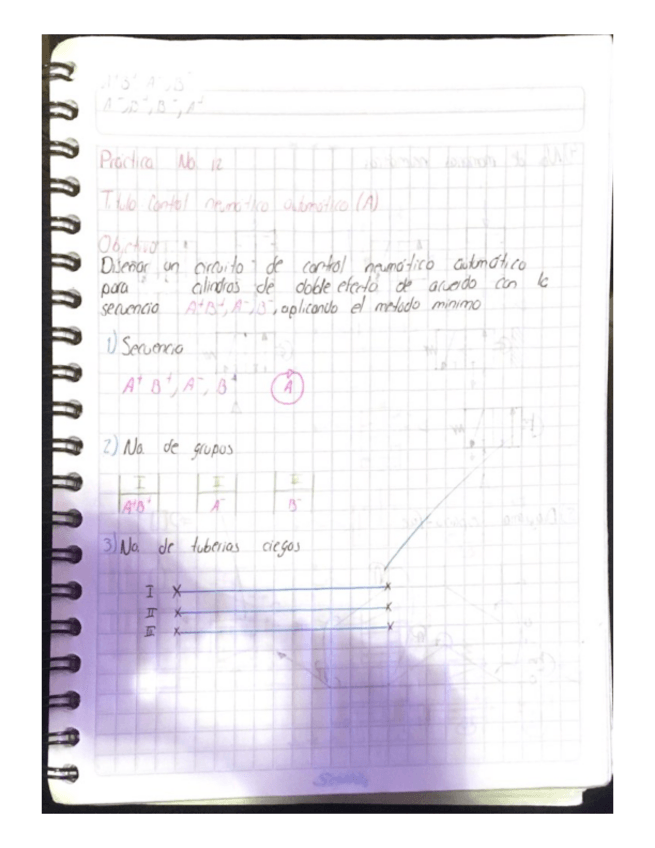 A⁻, B⁺, B⁻, A⁺
Práctica No 12
Titulo Control neumático automático (A)
Objetivo:
Diseñar un circuito de control neumático automático
para cilindros de doble efecto de acuerdo con la
secuencia A⁺B⁺, A⁻, B⁻, aplicando el metodo minimo
1) Secuencia
A⁺ B⁺, A⁻, B⁺ A
2) No. de grupos
I II
A⁺B⁺ A⁻ B⁻
3) No. de tuberias ciegas
I
II
III